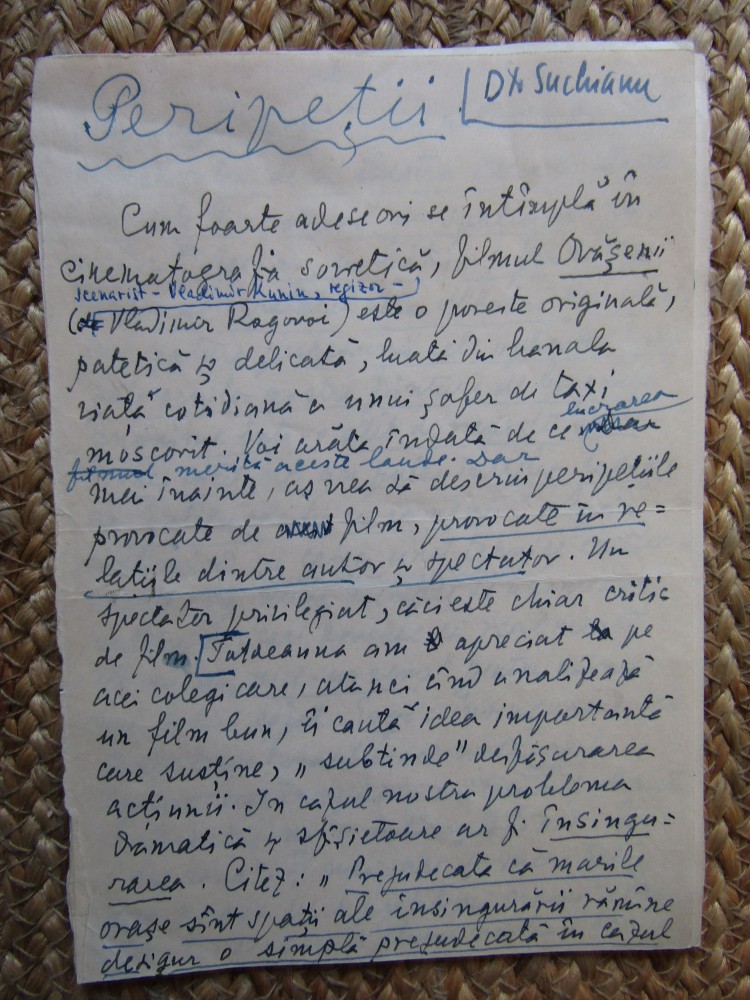 Peripeții
D. I. Suchianu
Cum foarte adeseori se întîmplă în
cinematografia sovietică, filmul Orășenii
scenarist – Vladimir Kunin, regizor –
(de Vladimir Rogovoi) este o poveste originală,
patetică și delicată, luată din banala
viață cotidiană a unui șofer de taxi
moscovit. Voi arăta îndată de ce
lucrarea
filmul merită aceste laude. Dar
mai înainte, aș vrea să descriu peripețiile
provocate de film, provocate în re=
lațiile dintre autor și spectator. Un
spectator privilegiat, căci este chiar critic
de film. Totdeauna am apreciat pe
acei colegi care, atunci cînd analizează
un film bun, îi caută idea importantă
care susține, „subtinde" desfășurarea
acțiunii. In cazul nostru problema
dramatică și sfîșietoare ar fi însingu=
rarea. Citez: „Prejudecata că marile
orașe sînt spații ale însingurării rămîne
desigur o simplă prejudecată în cazul